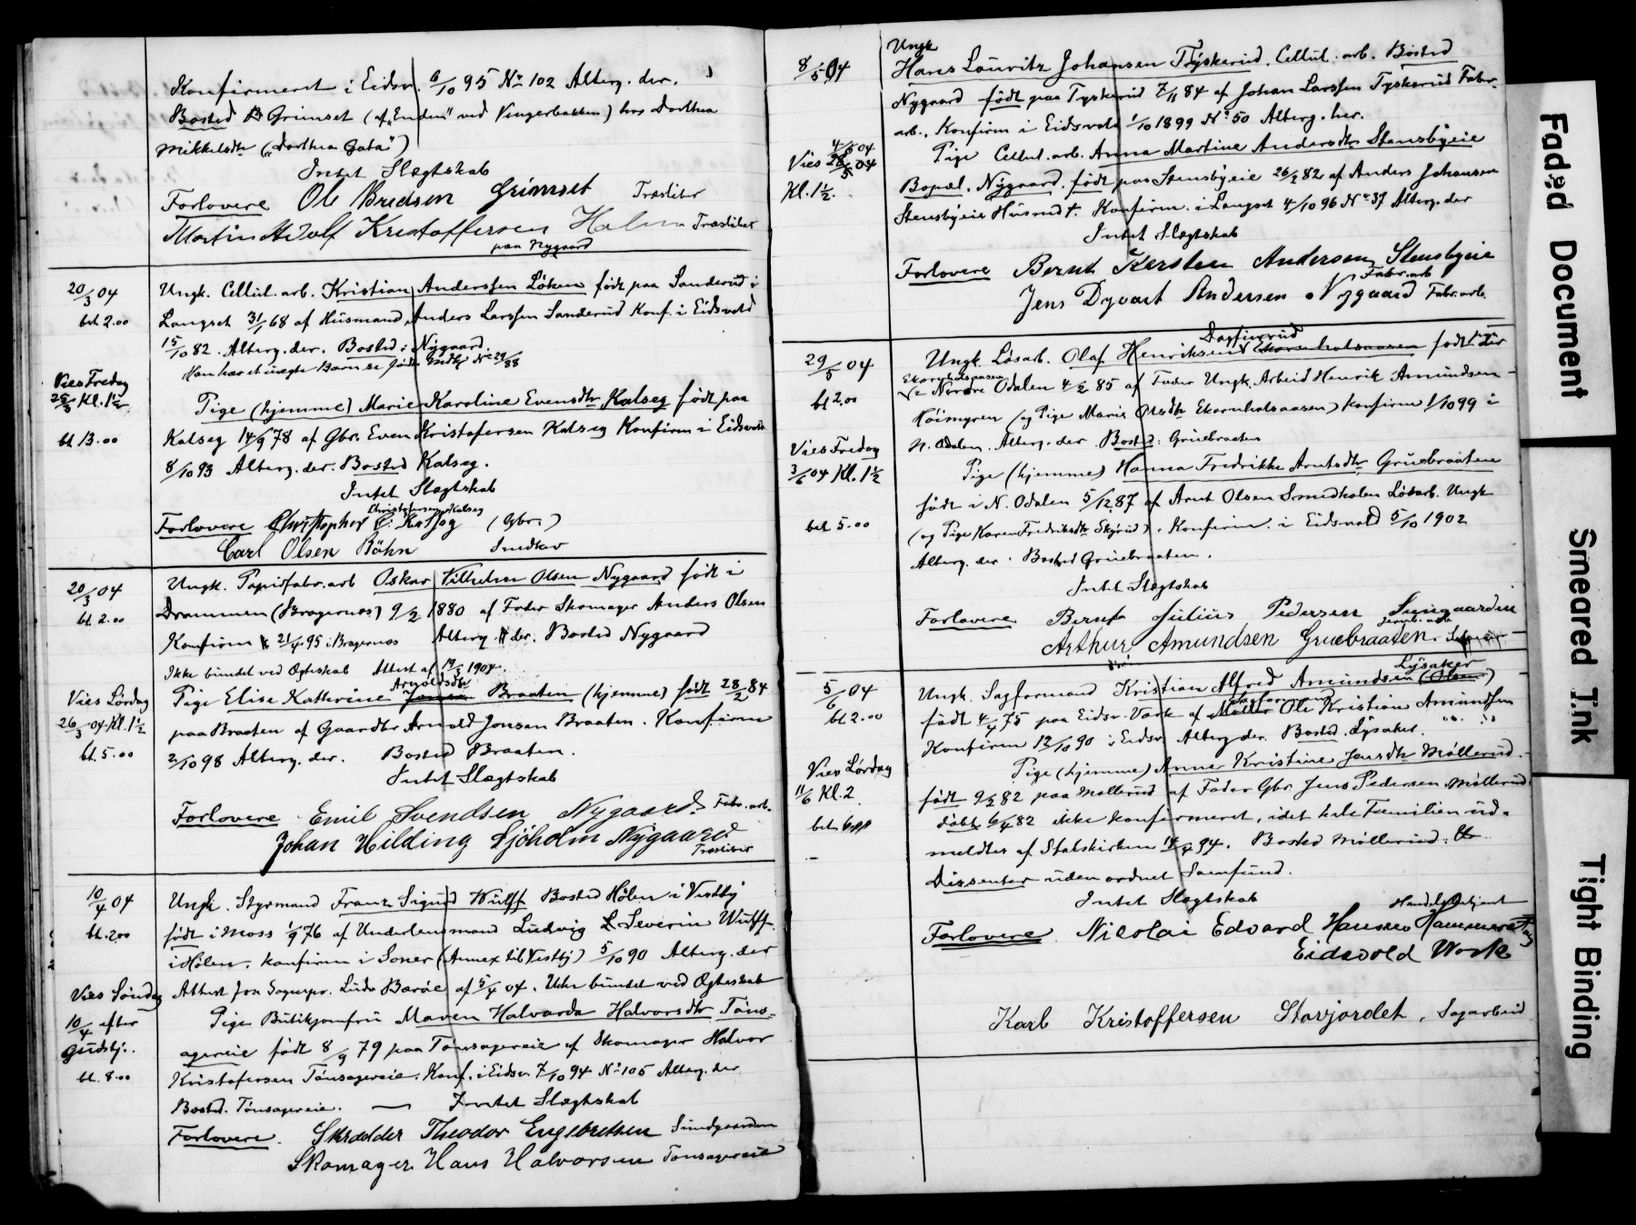 Konfirmeret i Eidsv. 6/10 95 No 102 Alterg. der.
Bosted Grimset ("Enden" ved Vingerbakken) hos Dorthea
Mikkelsdtr ("Dorthea Gata")
Intet Slægtskab
Forlovere Ole Bredsen Grimset Træsliter
Martin Adolf Kristoffersen Holm Træsliter
paa Nygaard
20/3 04 Ungk. Cellul. arb. Kristian Anderssen Løken født paa Sanderud i
bet 2.00 Langset 31/1 68 af Husmand Anders Larssen Sanderud Konf. i Eidsvold
15/10 82. Alterg. der. Bosted: Nygaard.
Han har et uægte Barn se Fødte No 29/88
Vies Fredag
25/3 Kl. 1½ Pige (hjemme) Marie Karoline Evensdtr Kalseg født paa
bt 13.00 Kalseg 14/9 78 af Gbr. Even Kristofersen Kalseg Konfirm i Eidsvold
8/10 93 Alterg. der. Bosted Kalseg.
Intet Slægtskab
Christophersen Kalseg
Forlovere Christopher E. Kalseg (Gbr.)
Carl Olsen Böhn Snedker
20/3 04 Ungk. Papirfabr. arb Oskar Vilhelm Olsen Nygaard født i
bt. 2.00 Drammen (Bragernæs) 9/2 1880 af Fader Skomager Anders Olsen
Konfirm 21/4 95 i Bragernæs Alterg der. Bosted Nygaard
Ikke bundet ved Egteskab Attest af 19/3 1904.
Arnoldsdtr
Vies Lördag Pige Elise Kathrine Braaten (hjemme) født 28/2 84
26/3 04 Kl. 1½ paa Braaten af Gaardbr Arnold Jonsen Braaten. Konfirm
bt. 5.00 2/10 98 Alterg. der. Bosted Braaten.
Intet Slægtskab
Forlovere Emil Svendsen Nygaard. Fabr. arb.
Johan Hilding Sjöholm Nygaard
Træsliter
10/4 04 Ungk. Styrmand Franz Sigurd Wulff Bosted Hölen i Vestby
bt. 2.00 født i Moss 1/9 76 af Underlensmand Ludvig Severin Wulff
i Hölen. Konfirm i Soner (Annex til Vestby) 5/10 90 Alterg. der
Vies Søndag Attest fra Sogнepr. Barøe af 5/4 04. Ikke bundet ved Egteskab
10/4 efter Pige Butikjomfru Maren Halvarda Halvorsdtr Töns-
Gudstj. agereie født 8/9 79 paa Tönsagereie af Skomager Halvor
bt. 8.00 Kristofersen Tönsagereie. Konf. i Eidsv 7/10 94 No 105 Alterg. der
Bosted. Tönsagereie. — Intet Slægtskab
Forlovere. Skrædder Theodor Engebretsen Sundgaarden
Skomager Hans Halvorsen Tönsagereie
Ungk
8/5 04 Hans Louritz Johansen Tyskerud, Cellul. arb. Bosted
Nygaard født paa Tyskerud 7/11 84 af Johan Larssen Tyskerud Fabr.
arb., Konfirm i Eidsvold 1/10 1899 No 50 Alterg. her.
4/6 04
Vies 28/5 04 Pige Cellul. arb. Anna Martine Andersdtr Stensbyeie
Kl. 1½. Bopæl. Nygaard. født paa Stensbyeie 26/2 82 af Anders Johansen
Stensbyeie Husmd †. Konfirm. i Langset 4/10 96 No 37 Alterg. der
Intet Slægtskab
Forlovere Bernt Kersten Andersen Stensbyeie
Fabr. arb
Jens Dyvart Andersen Nygaard Fabr. arb.
Dagfinrud
29/5 04 Ungk Lösarb. Olaf Henriksen Ekornholsaasen født
Ekornholsaasen
bt 2.00 Nordre Odalen 4/2 85 af Fader Ungk. Arbeid Henrik Amundsen
Höimyren (og Pige Marie Olsdtr Ekornholsaasen) Konfirm 1/10 99 i
N. Odalen. Alterg. der Bosted: Gruebraaten
Vies Fredag
3/6 04 Kl. 1½ Pige (hjemme) Hanna Fredrikke Arntsdtr Gruebraaten
født i N. Odalen 5/12 87 af Arnt Olsen Smedholen Lösarb. Ungk
bet 5.00 (og Pige Karen Fredriksdtr Skyrud). Konfirm. i Eidsvold 5/10 1902
Alterg. der. Bosted Gruebraaten.
Intet Slægtskab
Forlovere Bernt Julius Pedersen
Arthur Amundsen Gruebraaten.
Lysaker
5/6 04 Ungk. Sagformand Kristian Alfred Amundsen (Olsen)
bt 2.00 født 4/4 75 paa Eidsv. Værk af Ole Kristian Amundsen
Konfirm 12/10 90 i Eidsv. Alterg. der. Bosted. Lysaker.
Vies Lördag Pige (hjemme) Anne Kristine Jensdtr Möllerud.
11/6 Kl. 2 født 9/2 82 paa Möllerud af Fader Gbr Jens Pedersen Möllerud
döbt 6/4 82 ikke konfirmeret, idet hele Familien ud-
meldtes af Statskirken 14/4 94. Bosted Möllerud.
Dissenter uden ordnet Samfund.
Intet Slægtskab
Handelsbetjent
Forlovere. Nicolai Edvard Hansen Hammerstad
Eidsvold Værk
Karl Kristoffersen Storjordet, Sagarbeid
Faded Document
Smeared Ink
Tight Binding